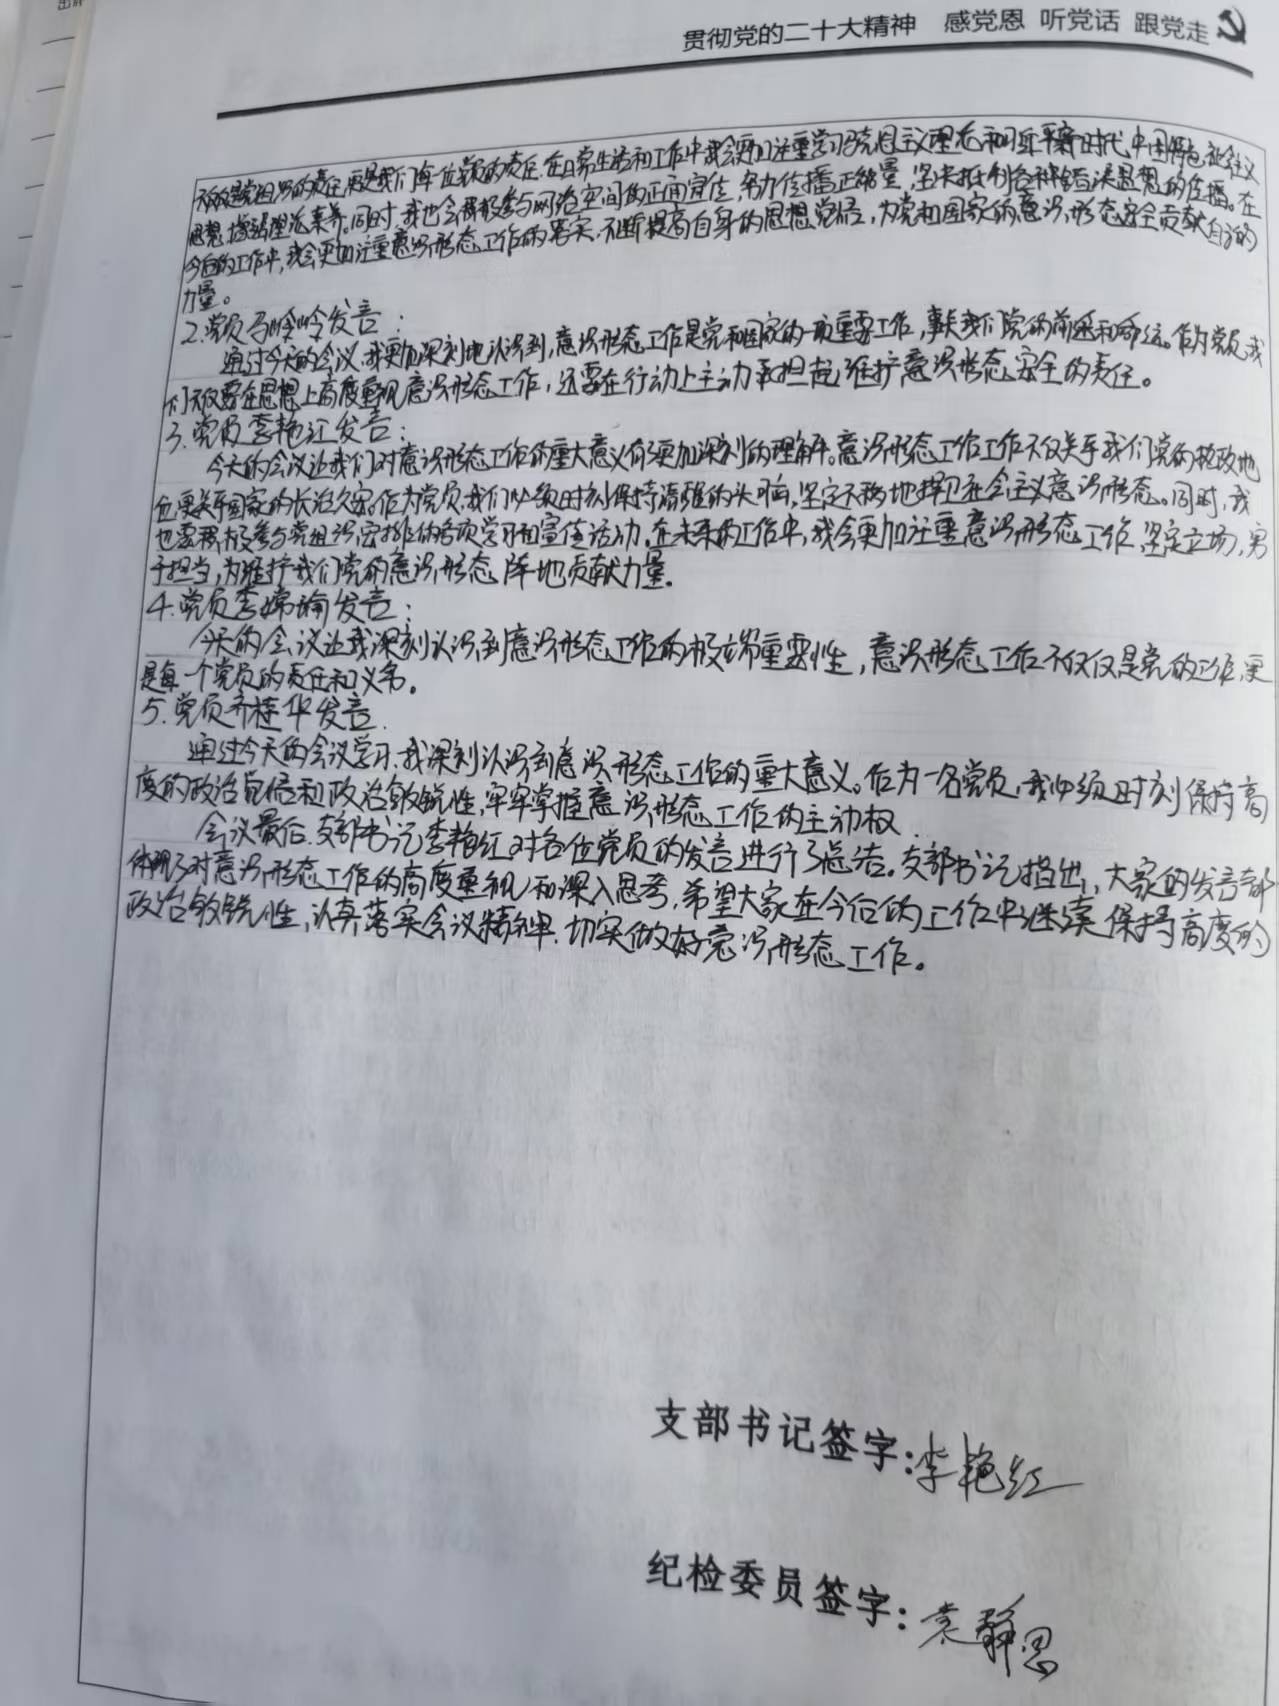 贯彻党的二十大精神 感党恩 听党话 跟党走
不仅仅是党组织的责任,更是我们每一位党员的责任.在日常生活和工作中,我会更加注重学习马克思主义理论和习近平新时代中国特色社会主义
思想,增强理论素养。同时,我也会积极参与网络空间的正面宣传,努力传播正能量,坚决抵制各种错误思想的传播。在
今后的工作中,我会更加注重意识形态工作的落实,不断提高自身的思想觉悟,为党和国家的意识形态安全贡献自己的
力量。
2.党员马岭岭发言:
通过今天的会议,我更加深刻地认识到,意识形态工作是党和国家的一项重要工作,事关我们党的前途和命运。作为党员,我
们不仅要在思想上高度重视意识形态工作,还要在行动上主动承担起维护意识形态安全的责任。
3.党员李艳江发言:
今天的会议让我们对意识形态工作的重大意义有了更加深刻的理解。意识形态工作工作不仅关乎我们党的执政地
位,更关乎国家的长治久安。作为党员,我们必须时刻保持清醒的头脑,坚定不移地捍卫社会主义意识形态。同时,我
也要积极参与党组织安排的各项学习和宣传活动.在未来的工作中,我会更加注重意识形态工作,坚定立场,勇
于担当,为维护我们党的意识形态阵地贡献力量.
4.党员李嫦瑜发言:
今天的会议让我深刻认识到意识形态工作的极端重要性,意识形态工作不仅仅是党的工作,更
是每一个党员的责任和义务。
5.党员齐桂华发言.
通过今天的会议学习,我深刻认识到意识形态工作的重大意义。作为一名党员,我必须时刻保持高
度的政治觉悟和政治敏锐性,牢牢掌握意识形态工作的主动权.
会议最后.支部书记李艳红对各位党员的发言进行了总结。支部书记指出,大家的发言都
体现了对意识形态工作的高度重视和深入思考,希望大家在今后的工作中继续保持高度的
政治敏锐性,认真落实会议精神.切实做好意识形态工作。
支部书记签字:李艳红
纪检委员签字:袁静思